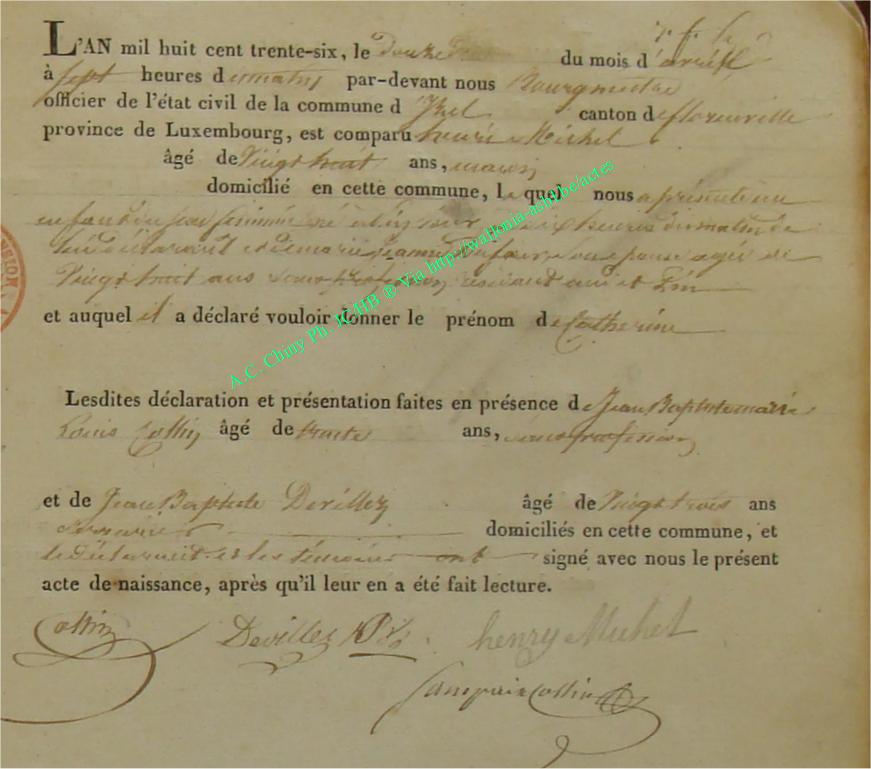 L'AN mil huit cent trente-six, le douze du mois d'avril
à sept heures du matin par-devant nous Bourgmestre
officier de l'état civil de la commune d'Izel canton de florenville
province de Luxembourg, est comparu henri Michel
âgé de vingt huit ans,
domicilié en cette commune, le quel nous a présenté un
enfant du sexe féminin né heures du matin de
lui déclarant et de marie son épouse agée de
vingt huit ans sans profession
et auquel il a déclaré vouloir donner le prénom de Catherine
A.C. Chiny Ph. KAIB ® Via http://wallonia-asbl.be/actes
Lesdites déclaration et présentation faites en présence de Jean Baptiste marie
Louis Collin âgé de trente ans, sans profession
et de Jean Baptiste Devillez âgé de vingt trois ans
domiciliés en cette commune, et
le déclarant et les témoins ont signé avec nous le présent
acte de naissance, après qu'il leur en a été fait lecture.
Collin Devillez henry Michel
Collin